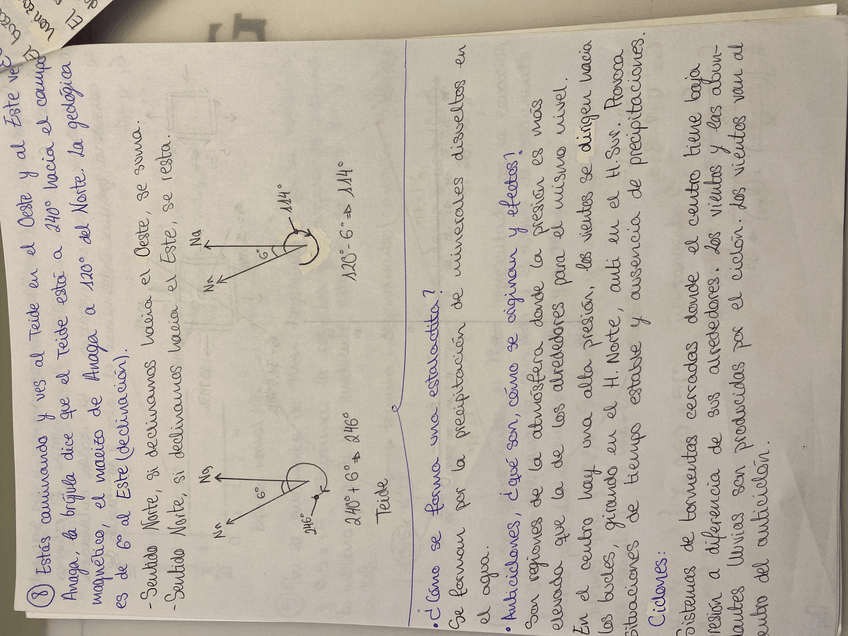 ⑧ Estás caminando y ves al Teide en el Oeste y al Este ve
Anaga, la brújula dice que el Teide está a 240° hacia el campo
magnético, el macizo de Anaga a 120° del Norte. La geológica
es de 6° al Este (declinación).
- Sentido Norte, si declinamos hacia el Oeste, se suma.
- Sentido Norte, si declinamos hacia el Este, se resta.
Nn
Ng
6°
246°
240° + 6° ⇒ 246°
Teide
Nn
Na
6°
114°
120° - 6° ⇒ 114°
• ¿Cómo se forma una estalactita?
Se forman por la precipitación de minerales disueltos en
el agua.
• Anticiclones, ¿qué son, cómo se originan y efectos?
Son regiones de la atmósfera donde la presión es más
elevada que la de los alrededores para el mismo nivel.
En el centro hay una alta presión, los vientos se dirigen hacia
los bucles, girando en el H. Norte, anti en el H. Sur. Provoca
situaciones de tiempo estable y ausencia de precipitaciones.
Ciclones:
Sistemas de tormentas cerradas donde el centro tiene baja
resión a diferencia de sus alrededores. Los vientos y las abun-
antes lluvias son producidas por el ciclón. Los vientos van al
entro del anticiclón.